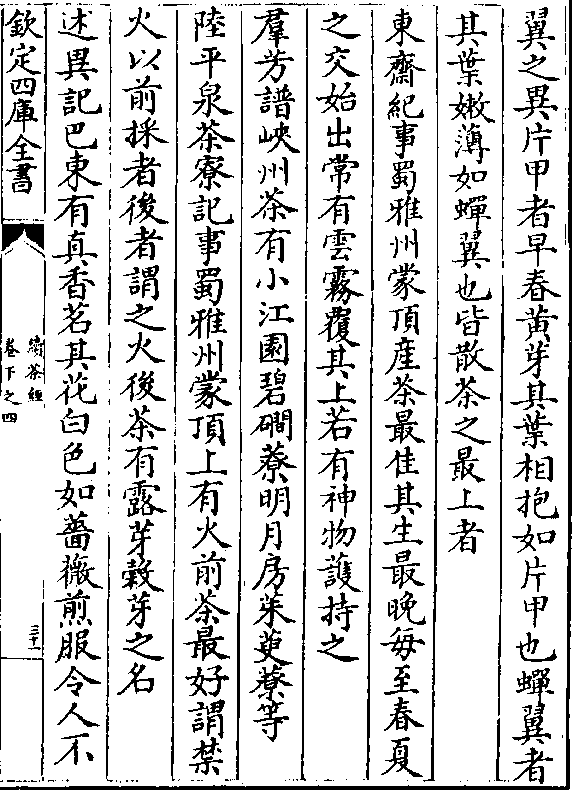 翼之異片甲者早春黄芽其葉相抱如片甲也蟬翼者
其葉嫩薄如蟬翼也皆散茶之最上者
東齋紀事蜀雅州蒙頂産茶最佳其生最晚每至春夏
之交始出常有雲霧覆其上若有神物護持之
羣芳譜峽州茶有小江園碧磵藔明月房茱萸藔等
陸平泉茶寮記事蜀雅州蒙頂上有火前茶最好謂禁
火以前採者後者謂之火後茶有露芽榖芽之名
述異記巴東有真香茗其花白色如薔薇煎服令人不
欽定四庫全書
續茶經
卷下之四
三十一